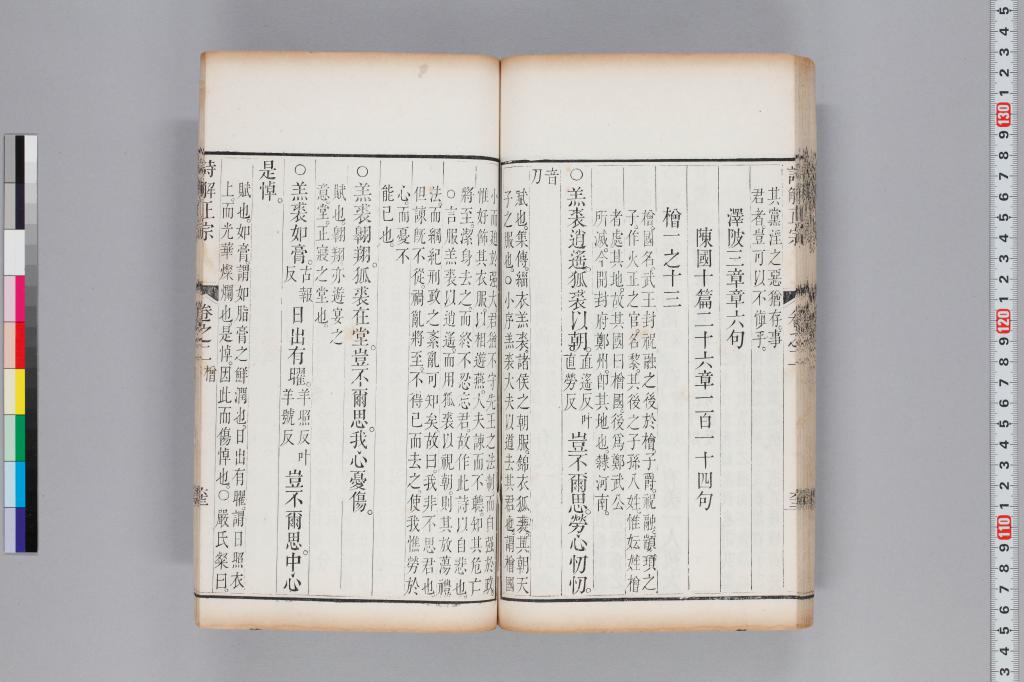 其黨淫之惡猶存事
君者豈可以不愼乎
澤陂三章章六句
陳國十篇二十六章一百一十四句
檜一之十三
檜國名武王封祝融之後於檜子爵祝融顓頊之
子作火正之官名黎其後之子孫八姓惟妘姓檜
者處其地故其國曰檜國後爲鄭武公
所滅今開封府鄭州卽其地也隸河南
○羔裘逍遙狐裘以朝直遙反叶直勞反豈不爾思勞心忉忉
音刀
賦也集傳緇衣羔裘諸侯之朝服錦衣狐裘其朝天
子之服也○小序羔裘大夫以道去其君也謂檜國
小而迫於強大君猶不守先王之法制而自強於政
惟好飾其衣服以相遊燕大夫諫而不聽知其危亡
將至潔身去之而終不忍忘君故作此詩以自悲也
○言服羔裘以逍遙而用狐裘以視朝則其放蕩禮
法而綱紀刑政之紊亂可知矣故曰我非不思君也
但諫旣不從禍亂將至不得已而去之使我憔勞於
心而憂不
能已也
○羔裘翺翔狐裘在堂豈不爾思我心憂傷
賦也翺翔亦遊宴之
意堂正寢之堂也
○羔裘如膏古報反日出有曜羊照反叶羊號反豈不爾思中心
是悼
賦也如膏謂如脂膏之鮮潤也日出有曜謂日照衣
上而光華燦爛也是悼因此而傷悼也○嚴氏粲曰
詩解正宗
卷之二
檜